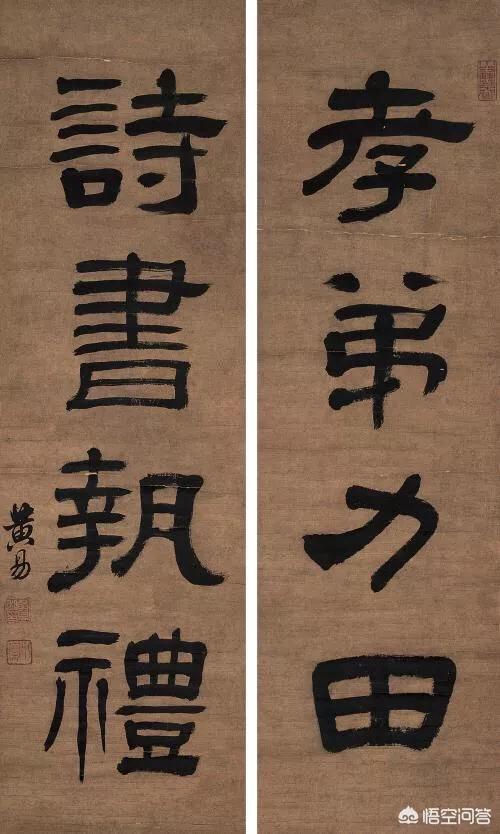 孝弟力田
詩書執禮
黄易
悟空问答